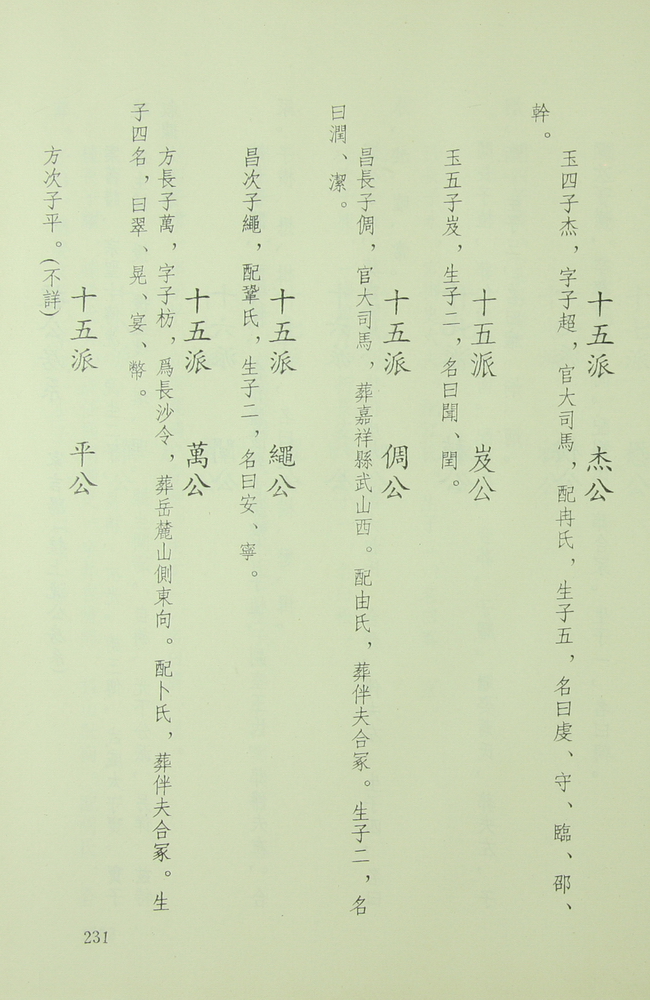 十五派　杰公
玉四子杰，字子超，官大司馬，配冉氏，生子五，名曰虔、守、臨、邵、
幹。
十五派　岌公
玉五子岌，生子二，名曰聞、閏。
十五派　倜公
昌長子倜，官大司馬，葬嘉祥縣武山西。配由氏，葬伴夫合冢。生子二，名
曰潤、潔。
十五派　繩公
昌次子繩，配鞏氏，生子二，名曰安、寧。
十五派　萬公
方長子萬，字子枋，爲長沙令，葬岳麓山側東向。配卜氏，葬伴夫合冢。生
子四名，曰翠、晃、宴、幣。
十五派　平公
方次子平。(不詳)
231